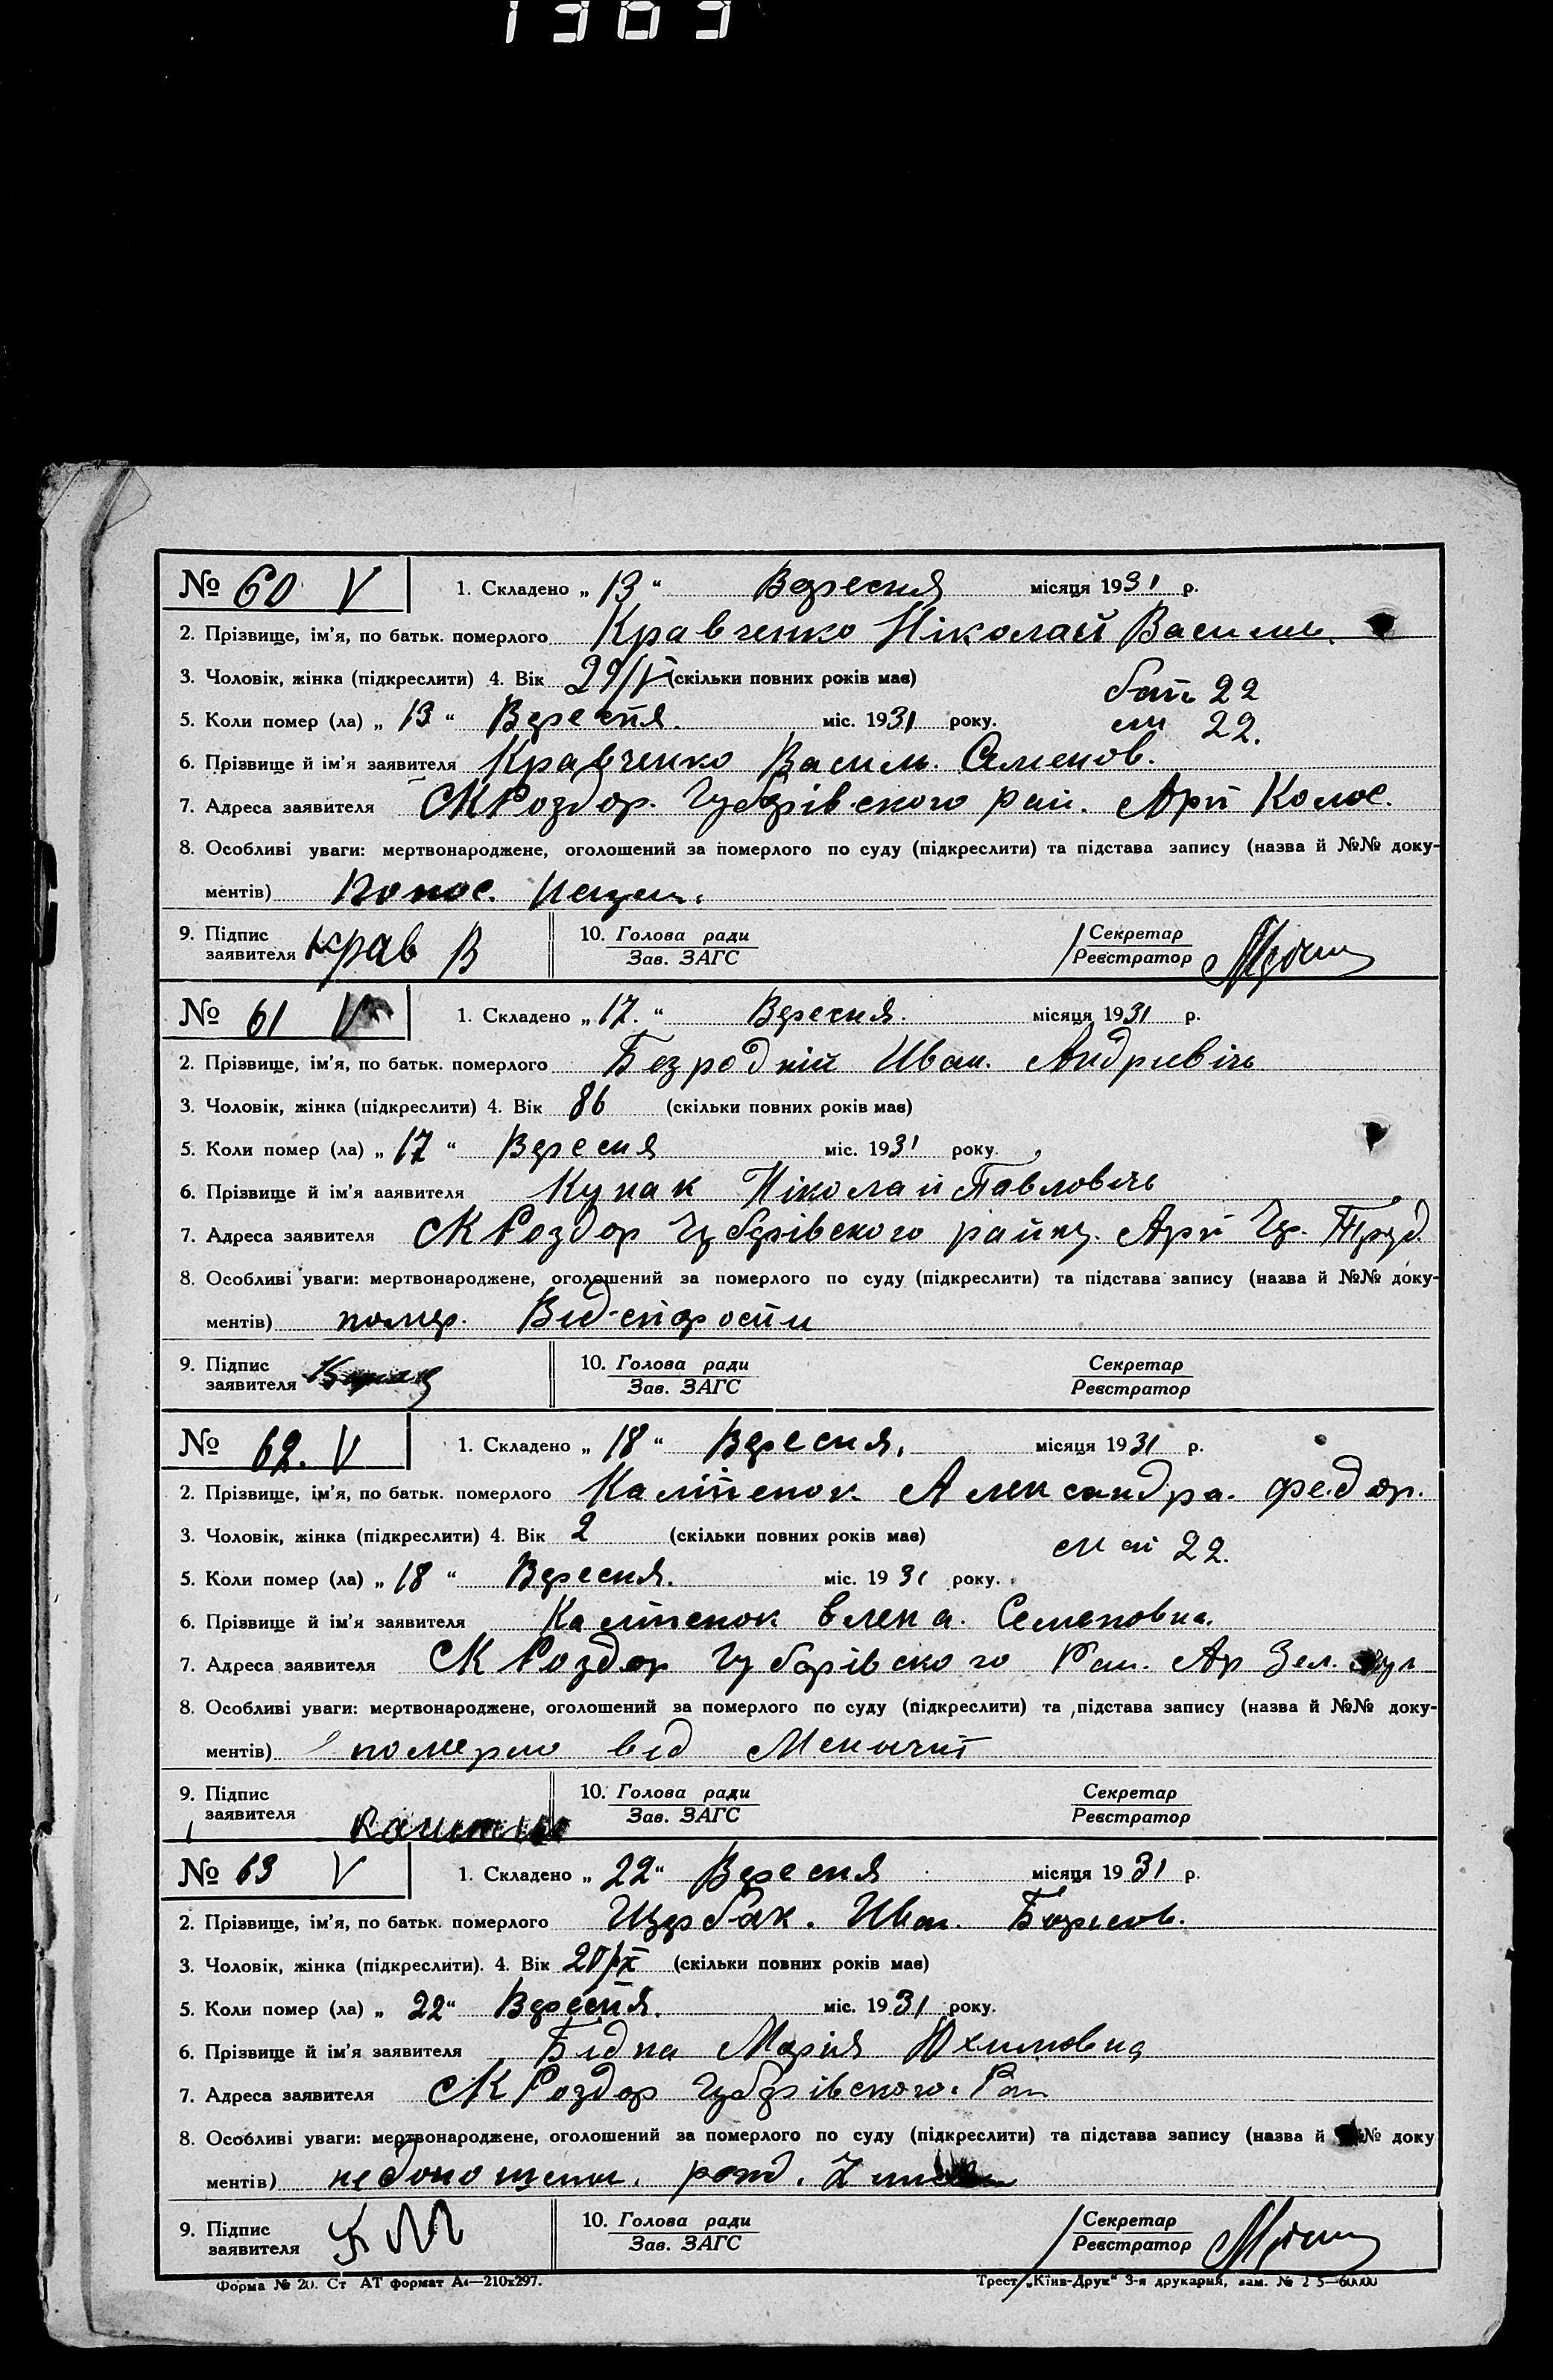 1383
№ 60 V 1. Складено „ 13 “ Вересня місяця 1931 р.
2. Прізвище, ім’я, по батьк. померлого Кравченко Ніколай Василь.
3. Чоловік, жінка (підкреслити) 4. Вік (скільки повних років має)
22
5. Коли помер (ла) „ 13 “ Вересня. міс. 1931 року.
22.
6. Прізвище й ім’я заявителя Кравченко Василь. Семенов.
7. Адреса заявителя СК Роздор. Чубарівского рай. Арт Колос.
8. Особливі уваги: мертвонароджене, оголошений за померлого по суду (підкреслити) та підстава запису (назва й №№ доку-
ментів) Понос.
9. Підпис заявителя Крав В 10. Голова ради Зав. ЗАГС Секретар Реєстратор
№ 61 V 1. Складено „ 17. “ Вересня. місяця 1931 р.
2. Прізвище, ім’я, по батьк. померлого Безродній Иван. Андриевічь
3. Чоловік, жінка (підкреслити) 4. Вік 86 (скільки повних років має)
5. Коли помер (ла) „ 17 “ Вересня міс. 1931 року.
6. Прізвище й ім’я заявителя Купак Ніколай Павловічь
7. Адреса заявителя СК Роздор Чубарівского району. Арт Чер. Труд
8. Особливі уваги: мертвонароджене, оголошений за померлого по суду (підкреслити) та підстава запису (назва й №№ доку-
ментів) помер. Від старости
9. Підпис заявителя 10. Голова ради Зав. ЗАГС Секретар Реєстратор
№ 62. V 1. Складено „ 18 “ Вересня. місяця 1931 р.
2. Прізвище, ім’я, по батьк. померлого Калітенок Александра. Федор.
3. Чоловік, жінка (підкреслити) 4. Вік 2 (скільки повних років має)
22.
5. Коли помер (ла) „ 18 “ Вересня. міс. 1931 року.
6. Прізвище й ім’я заявителя Калітенок Елена. Семеновна.
7. Адреса заявителя СК Роздор Чубарівского Рай. Ар Зел.
8. Особливі уваги: мертвонароджене, оголошений за померлого по суду (підкреслити) та підстава запису (назва й №№ доку-
ментів) померло від Менычит
9. Підпис заявителя 10. Голова ради Зав. ЗАГС Секретар Реєстратор
№ 63 V 1. Складено „ 22 “ Вересня місяця 1931 р.
2. Прізвище, ім’я, по батьк. померлого Щербак. Иван. Борисов.
3. Чоловік, жінка (підкреслити). 4. Вік (скільки повних років має)
5. Коли помер (ла) „ 22 “ Вересня. міс. 1931 року.
6. Прізвище й ім’я заявителя Бідна Марія Юхимовна
7. Адреса заявителя СК Роздор Чубарівского. Рай
8. Особливі уваги: мертвонароджене, оголошений за померлого по суду (підкреслити) та підстава запису (назва й № доку
ментів) недоношени.
9. Підпис заявителя 10. Голова ради Зав. ЗАГС Секретар Реєстратор
Форма № 20. Ст АТ формат А4—210x297. Трест „Київ-Друк“ 3-я друкарня, зам. №